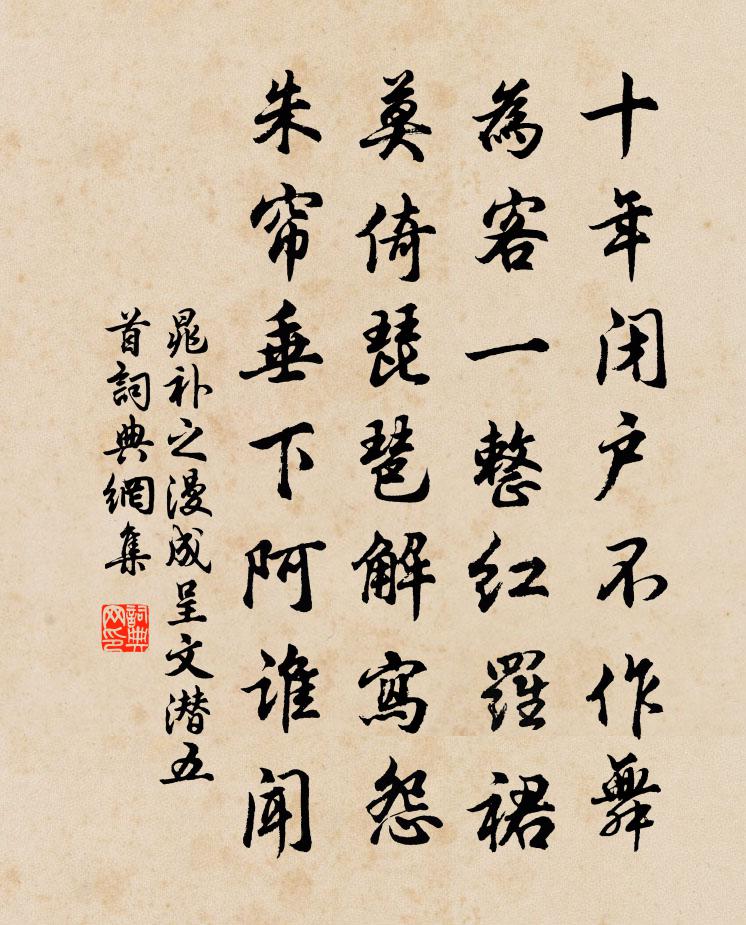 十年闭户不作舞
為客一整红羅裙
莫倚琵琶解寫怨
朱帘垂下阿谁闻
晁补之漫成呈文潜五
首詞典網集
詞典
网印